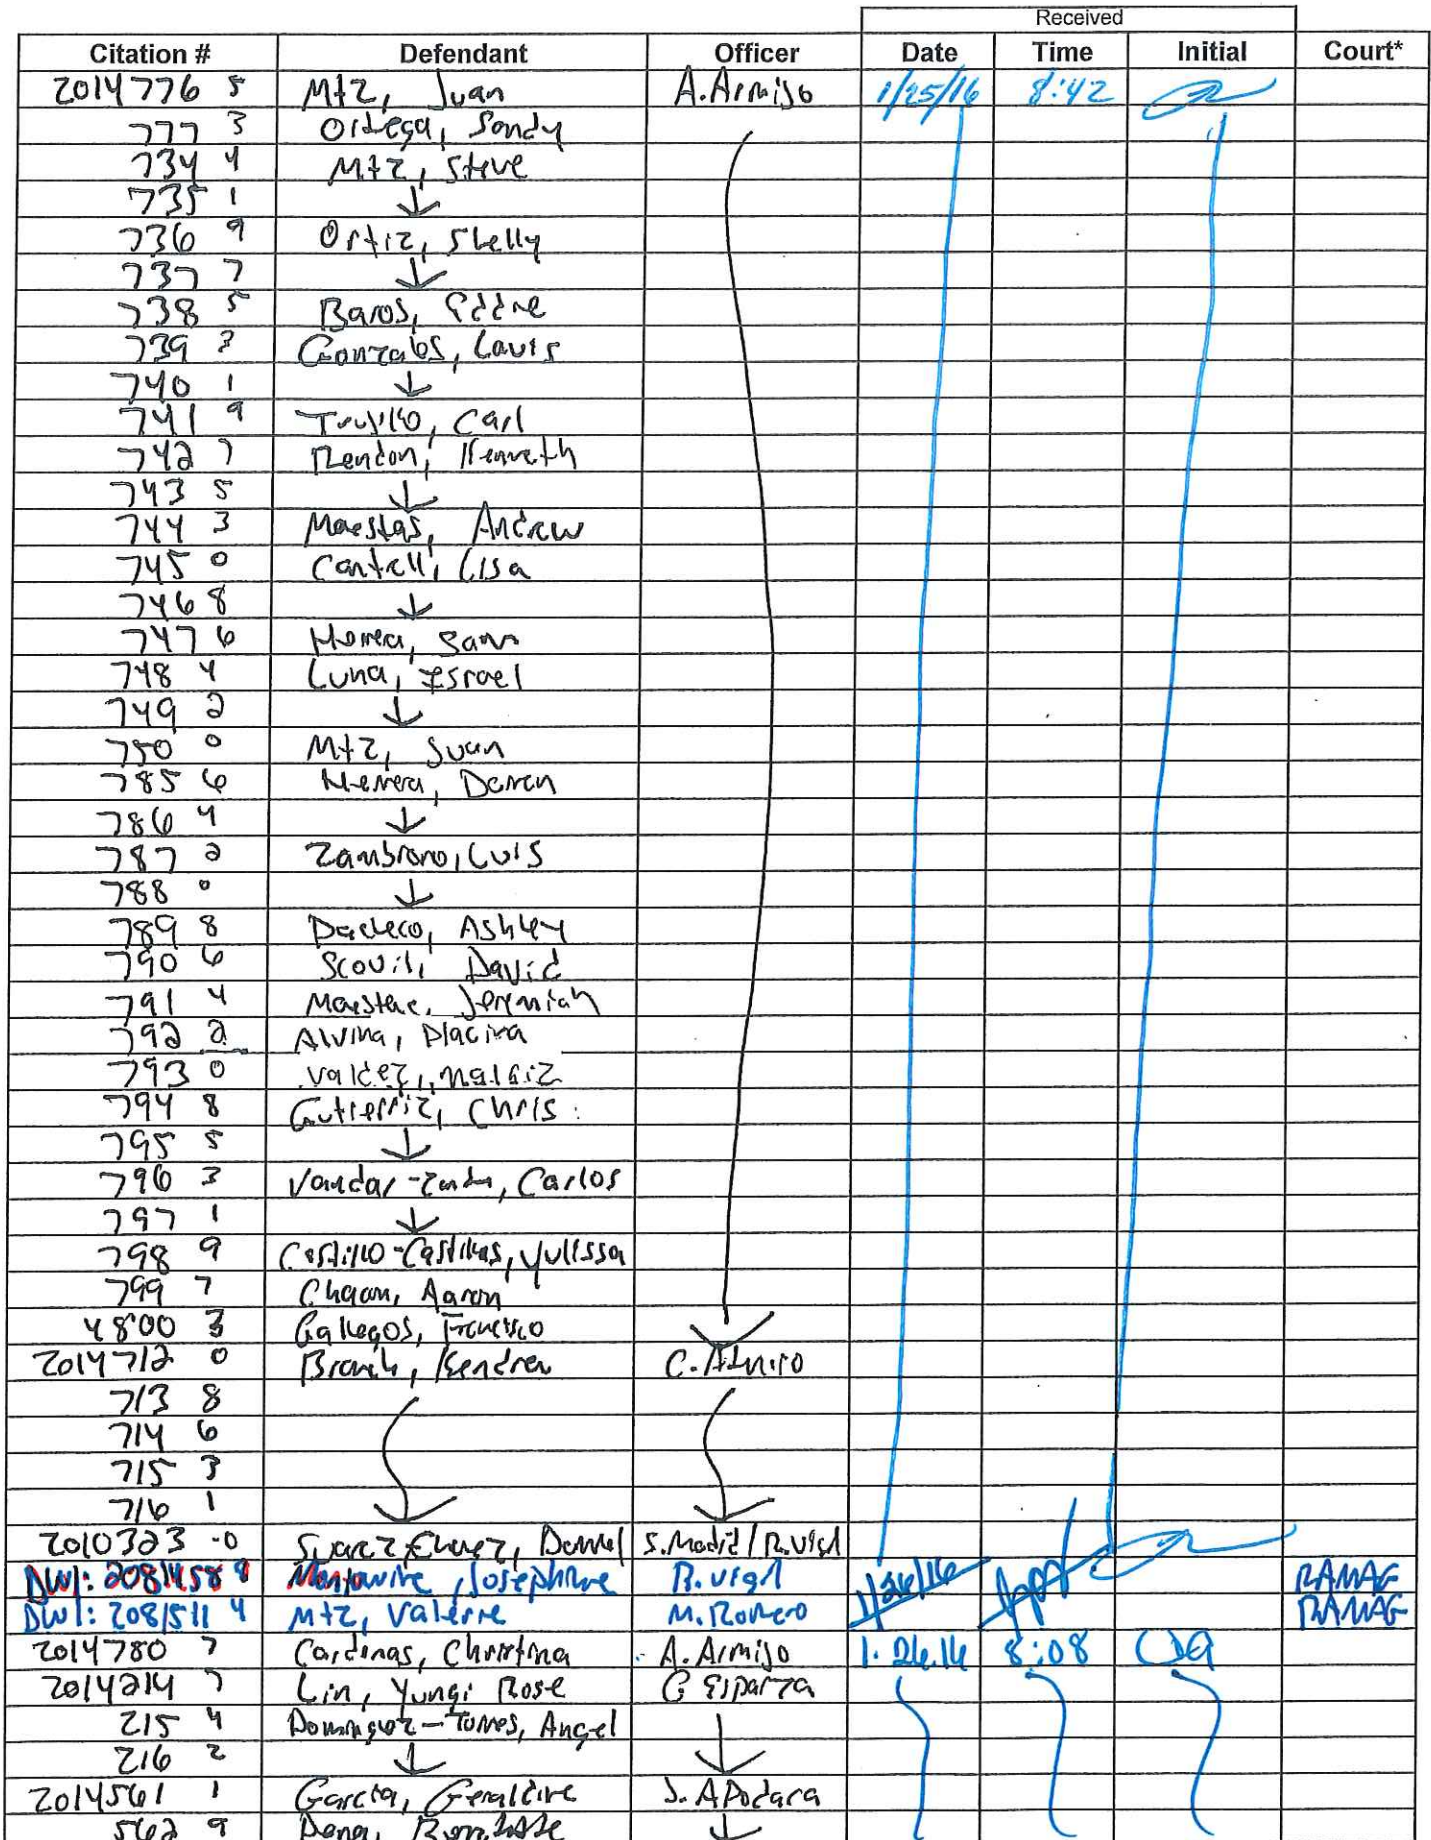 Received
Citation # Defendant Officer Date Time Initial Court*
2014776 5 Mtz, Juan A. Armijo 1/25/16 8:42
777 3 Ortega, Sandy
734 4 Mtz, Steve
735 1 ↓
736 9 Ortiz, Shelly
737 7 ↓
738 5 Baros, Eddie
739 3 Gonzales, Louis
740 1 ↓
741 9 Trujillo, Carl
742 7 Rendon, Kenneth
743 5 ↓
744 3 Maestas, Andrew
745 0 Cantrell, Lisa
746 8 ↓
747 6 Herrera, Sam
748 4 Luna, Israel
749 2 ↓
750 0 Mtz, Juan
785 6 Herrera, Darren
786 4 ↓
787 2 Zambrano, Luis
788 0 ↓
789 8 Pacheco, Ashley
790 6 Scovil, David
791 4 Jeremiah
792 2 Alvina, Placina
793 0 Valdez,
794 8 Gutierriz, Chris
795 5 ↓
796 3 Carlos
797 1 ↓
798 9 Yulissa
799 7 Chacon, Aaron
4800 3 Gallegos, Francisco
2014712 0 Kendra C.
713 8
714 6
715 3
716 1
2010323 -0 Daniel S. Madrid / R. Vigil
DWI: 2081458 8 Josephine R. Vigil 1/26/16 RAMAG
DWI: 2081511 4 Mtz, Valerie M. Romero RAMAG
2014780 7 Cardinas, Christina A. Armijo 1.26.16 8:08
2014214 7 Lin, Yungi Rose G Esparza
215 4 Dominguez-Torres, Angel
216 2 ↓ ↓
2014561 1 Garcia, Geraldine J. Apodaca
562 9 ↓